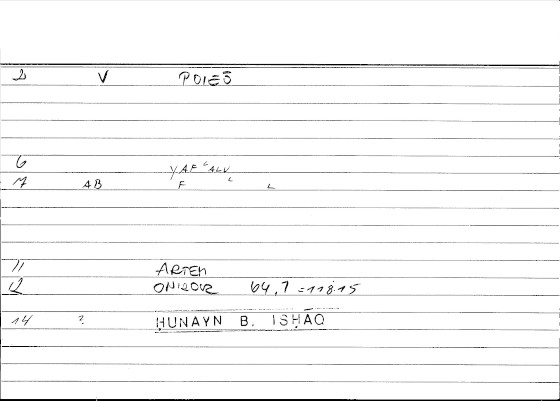 2 V POIEŌ
6 YAF ʿALU
7 AB F ʿ L
11 ARTEM
12 ONIROCR 64,7 = 118.15
14 ? ḤUNAYN B. ISḤĀQ